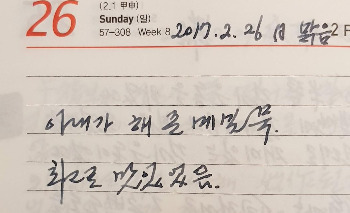 (2.1 甲申)
26 Sunday (일)
57-308 Week 8 2017. 2. 26 日 맑음
아내가 해 준 메밀묵.
최고로 맛있었음.